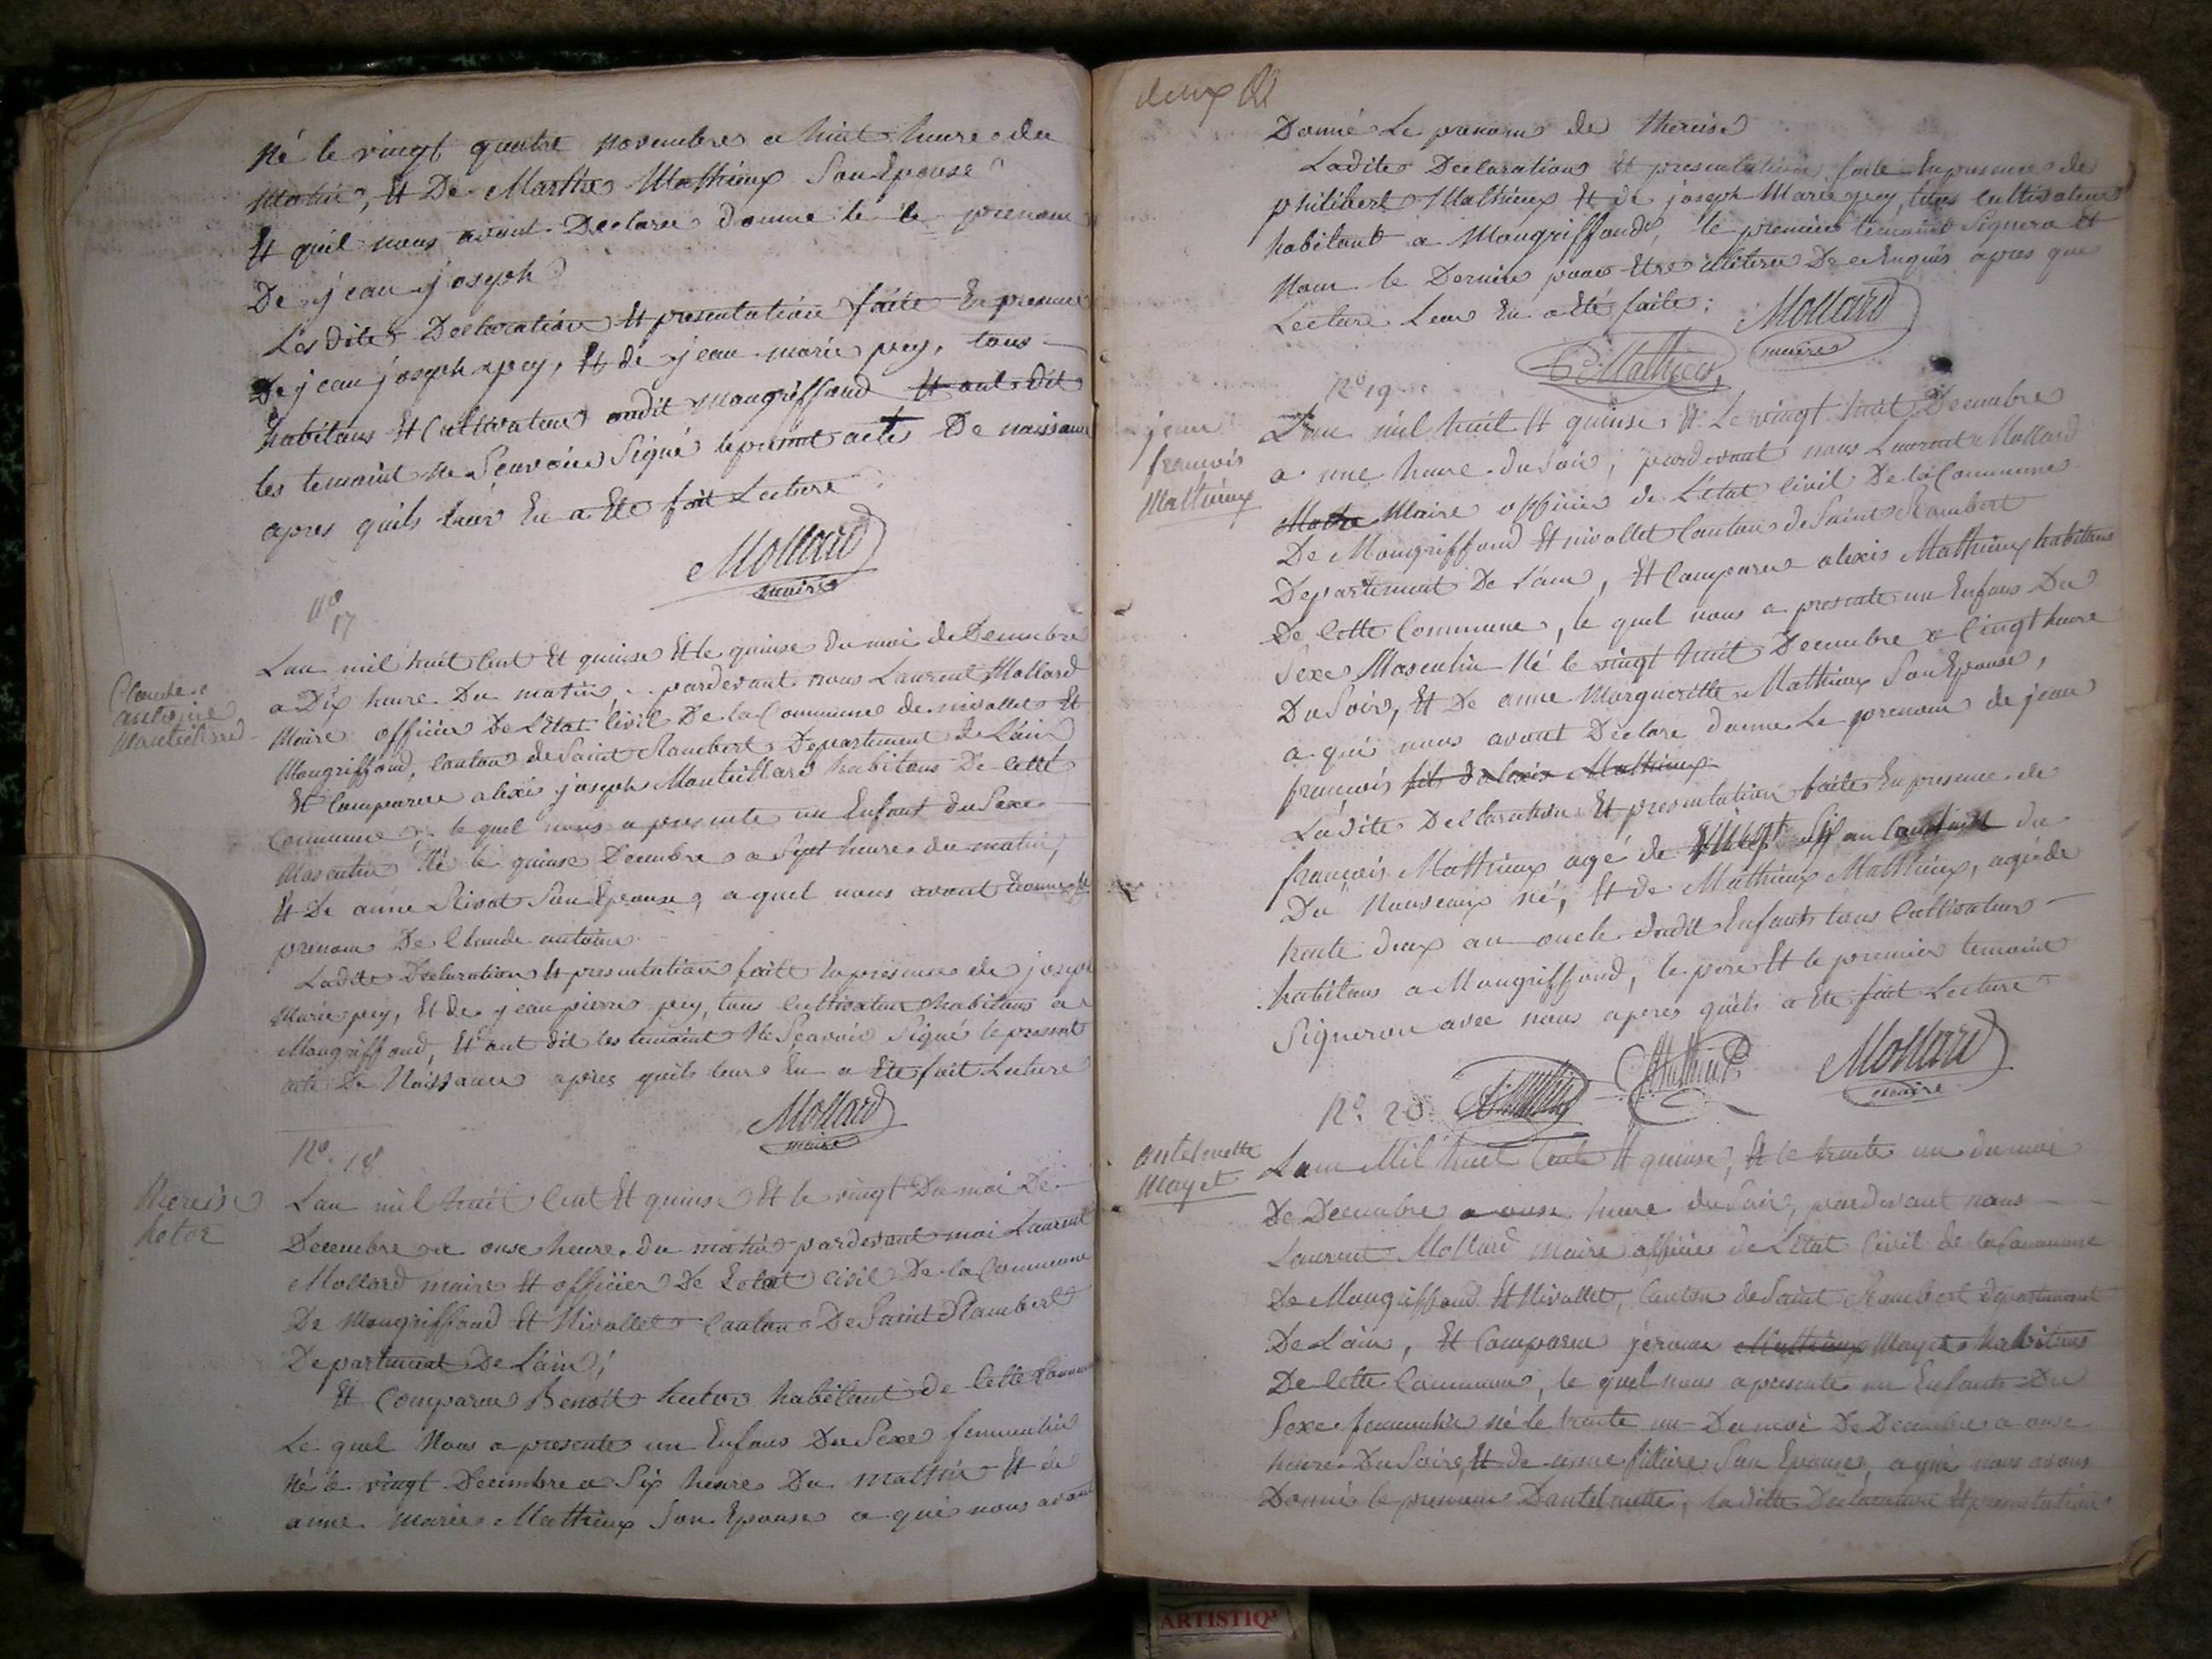 né le vingt quatre novembre a huit heure du
matin, Et De Marthe Mathieux Son Epouse
Et quil nous avont Declaree donne le le prenom
De jean joseph
Lesdites Declaration Et presentation faite En presence
De jean joseph pey, Et de jean marie pey, tous
habitans Et Cultivateur audit Mongriffond Et ont dit
les temoint ne Scavoir Signé le present acte De naissance
apres quils leur En a Ete fait Lecture
Mollard
maire
No 17
Claude
antoine
Montillard
Lan mil huit Cent Et quinse Et le quinse du moi de Decembre
a Dix heure Du matin, pardevant nous Laurent Mollard
Maire officier De Letat Civil De la Commune de nivollet Et
Mongriffond, Canton de Saint Rambert Departement de Lain
Et Comparu alexi joseph Monteillard habitans De Cette
Commune, le quel nous a presente un Enfant du Sexe
Masculin Né le quinse Decembre a Sept heure du matin,
Et De anne Rivat Son Epouse, a quel nous avont donne le
prenom De Claude antoine
Ladite Declaration Et presentation faite En presence de joseph
Marie pey, Et de jean pierre pey, tous Cultivateur habitans a
Mongriffond, Et ont dit les temoint Ne Scavoir Signé le present
acte De Naissance apres quils leur En a Ete fait Lecture
Mollard
maire
No. 18
thereise
hotor
Lan mil huit Cent Et quinse Et le vingt Du moi De
Decembre a onse heure. du matin pardevant moi Laurent
Mollard maire Et officier De Letat Civil De la Commune
De Mongriffond Et Nivollet Canton De Saint Rambert
Departement De Lain,
Et Comparu Benoit hutor habitant de Cette Commune
Le quel Nous a presente un Enfans Du Sexe femmenin
Né le vingt Decembre a Six heure Du matin Et de
anne Marie Mathieux Son Epouse a qui nous avont
deux
Donné Le prenom de thereise
Ladite Declaration Et presentation faite En presence de
philibert Mathieux Et de joseph Marie pey, tous Cultivateur
habitant a Mongriffond, le premier temoint Signera Et
Non le Dernier pour Etre aliteré De Enquis apres que
Lecture Leur En a Eté faite;
Mollard
maire
Mathieux
No 19
jean
francois
Mathieux
Lan mil huit Et quinse Et Le vingt huit Decembre
a une heure du Soir, pardevant nous Laurent Mollard
Maire officier de Létat Civil De la Commune
De Mongriffond Et nivollet Canton de Saint Rambert
Departement De Lain, Et Comparu alexis Mathieux habitans
De Cette Commune, le quel nous a presente un Enfans Du
Sexe Masculin Né le vingt huit Decembre a Cingt heure
Du Soir, Et De anne Marguerite Mathieux Son Epouse,
a qui nous avont Declare donne Le prenom de jean
françois fils dalexis Mathieux
Ladite Declaration Et presentation faite En presence de
françois Mathieux agé de du
Du Nouveaux né, Et de Mathieux Mathieux, agé de
trente deux an oncle dudit Enfants tous Cultivateur
habitans a Mongriffond, le pere Et le premier temoint
Signeron avec nous apres quils a Ete fait Lecture
Mathieux
Mollard
maire
No. 20
antelmette
Mayet
Lan Mil huit Cent Et quinse, Et le trente un du moi
De Decembre a onse heure du Soir, pardevant nous
Laurent Mollard maire officier de Létat Civil de la Commune
De Mongriffond Et Nivollet, Canton de Saint Rambert departement
De Lain, Et Comparu jerome Mathieux Mayet habitans
De Cette Commune, le quel nous a presente un Enfants Du
Sexe femmenin né le trente un Du moi De Decembre a onse
heure Du Soire, Et de anne Son Epouse, a qui nous avons
Donné le prenom Dantelmette, ladite Declaration Et presentation
ARTISTIQ